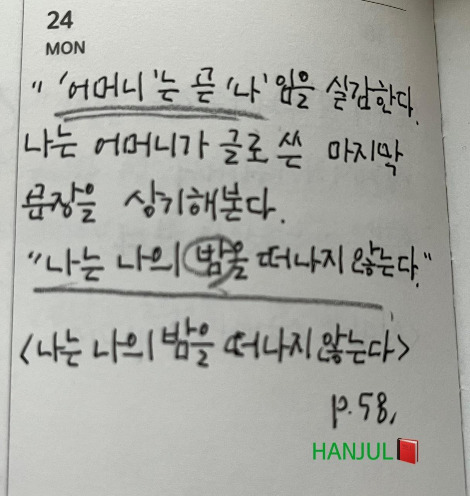 24
MON
" '어머니'는 곧 '나'임을 실감한다.
나는 어머니가 글로 쓴 마지막
문장을 상기해본다.
"나는 나의 밤을 떠나지 않는다."
<나는 나의 밤을 떠나지 않는다>
p.58,
HANJUL📕